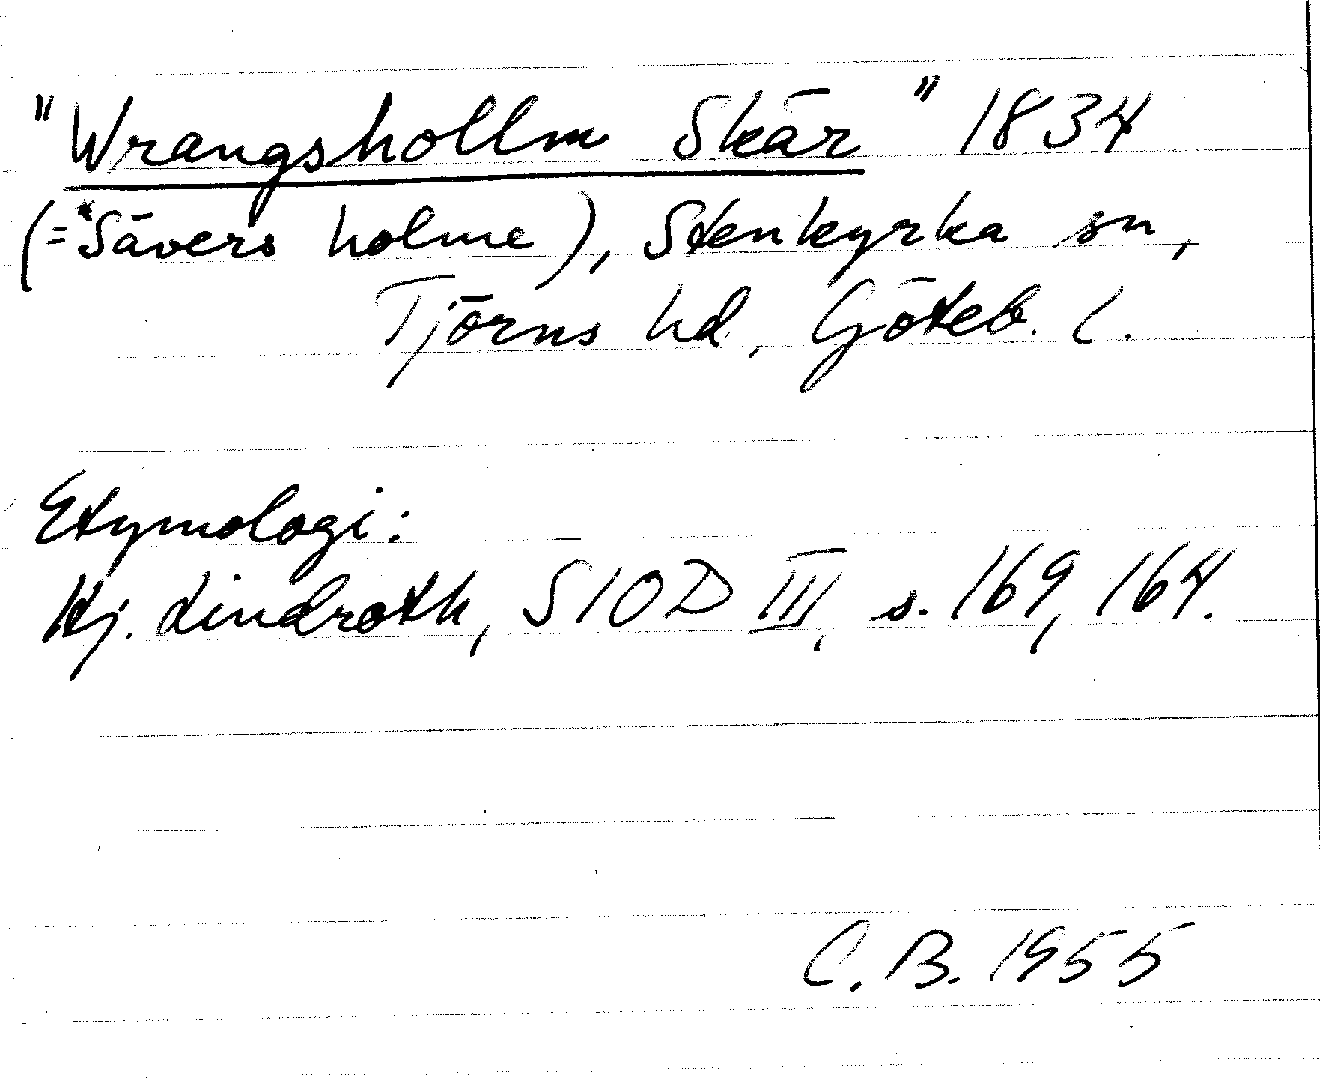 "Wrangshollm Skär" 1834
(=*Sävers holme), Stenkyrka sn,
Tjörns hd, Göteb. l.
Etymologi:
Hj. Lindroth, SIOD III, s. 169, 164.
C. B. 1955